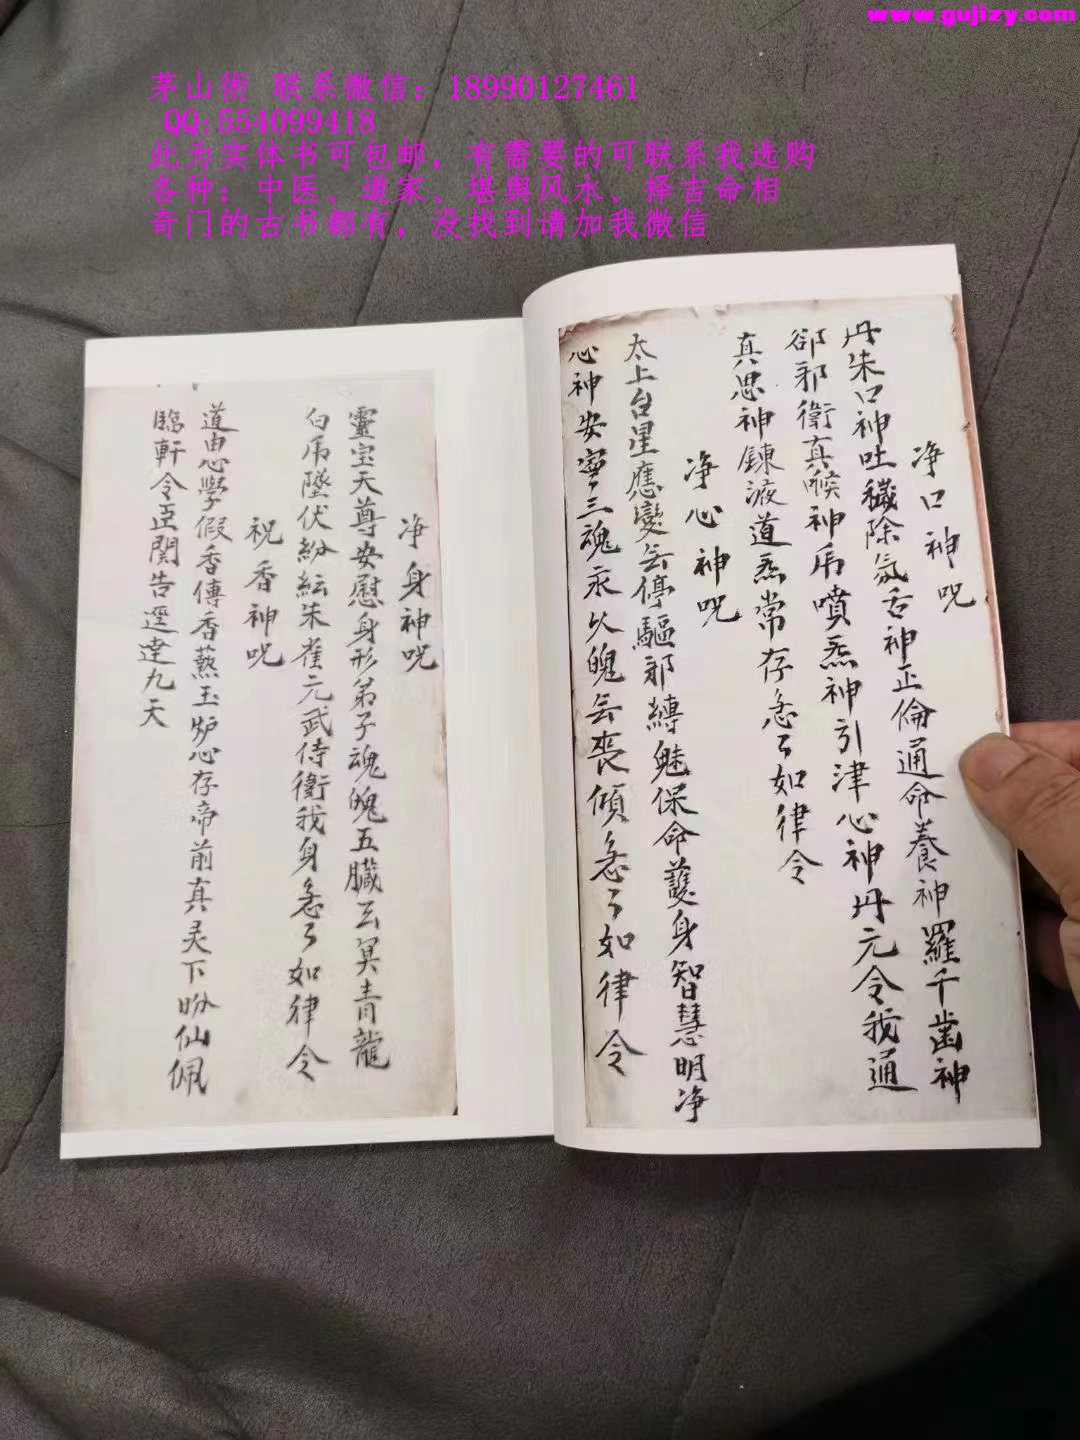 www.gujizy.com
茅山術 联系微信：18990127461
QQ:554099418
此为实体书可包邮，有需要的可联系我选购
各种：中医、道家、堪舆风水、择吉命相
奇门的古书都有，没找到请加我微信
净口神咒
丹朱口神吐穢除氛舌神正倫通命養神羅千齒神
郤邪衛真喉神虎噴炁神引津心神丹元令我通
真思神鍊液道炁常存急々如律令
净心神咒
太上台星應變云停驅邪縛魅保命護身智慧明净
心神安寧三魂永久魄云喪傾急々如律令
净身神咒
靈宝天尊安慰身形弟子魂魄五臟云冥青龍
白虎墜伏紛紜朱雀元武侍衛我身急々如律令
祝香神咒
道由心學假香傳香爇玉炉心存帝前真灵下盼仙佩
臨軒令臣関告逕達九天